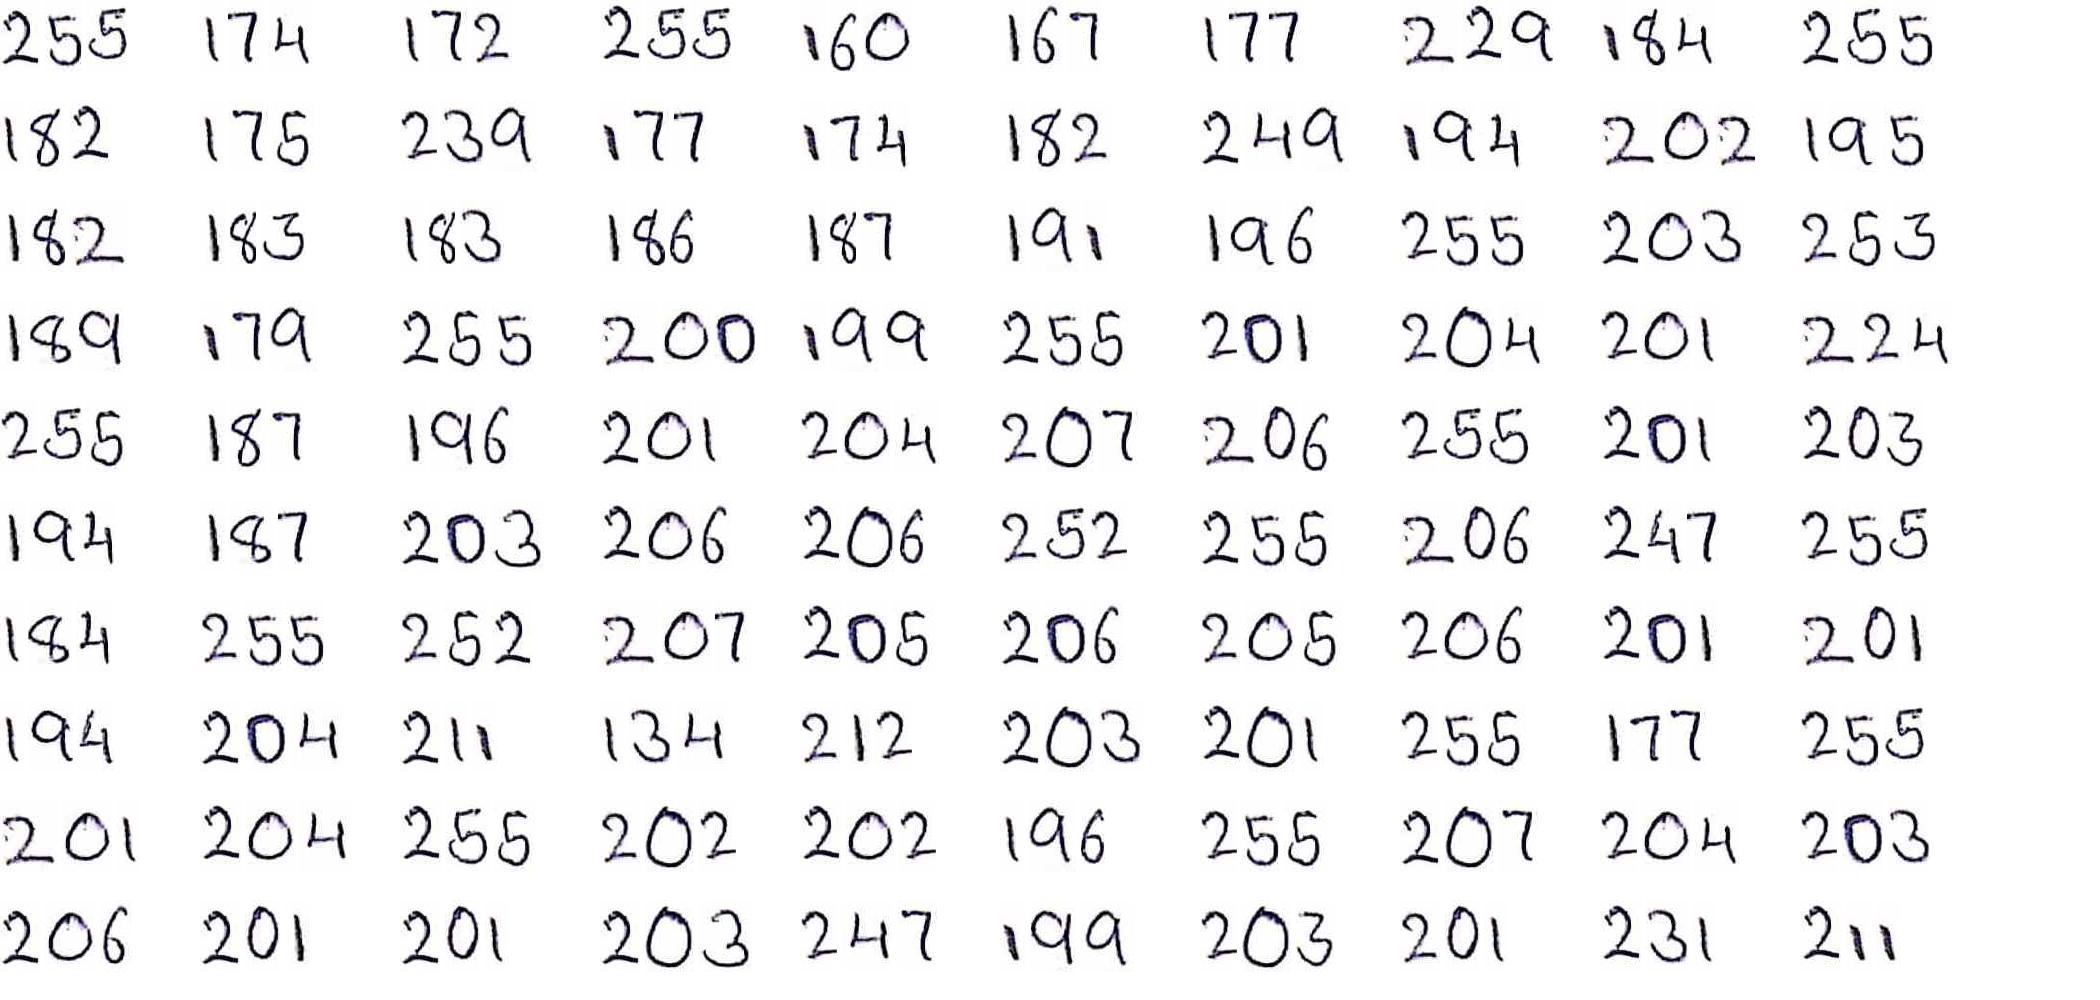 255 174 172 255 160 167 177 229 184 255
182 175 239 177 174 182 249 194 202 195
182 183 183 186 187 191 196 255 203 253
189 179 255 200 199 255 201 204 201 224
255 187 196 201 204 207 206 255 201 203
194 187 203 206 206 252 255 206 247 255
184 255 252 207 205 206 205 206 201 201
194 204 211 134 212 203 201 255 177 255
201 204 255 202 202 196 255 207 204 203
206 201 201 203 247 199 203 201 231 211